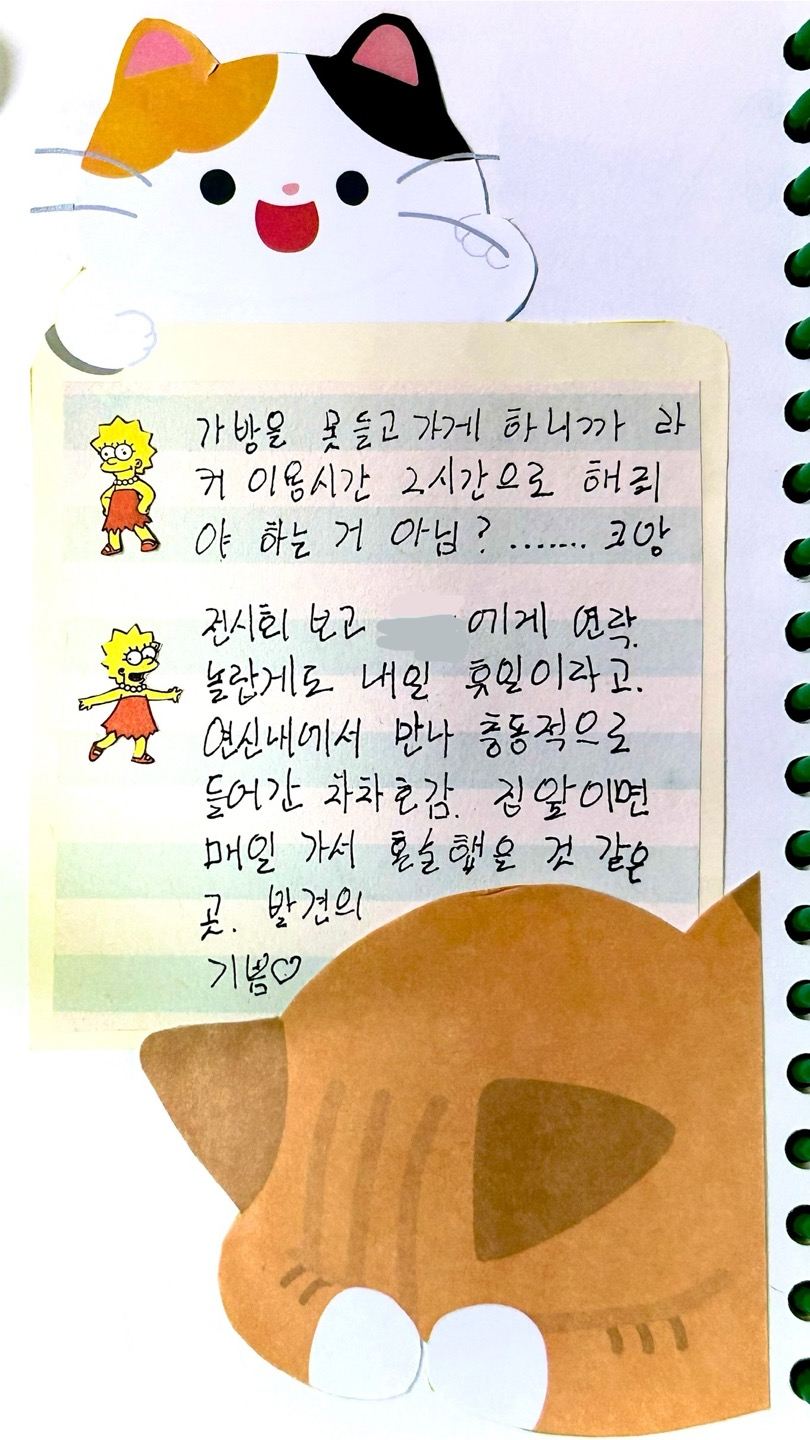 가방을 못 들고 가게 하니까 라
커 이용시간 2시간으로 해줘
야 하는 거 아님? ....... 크앙
전시회 보고 에게 연락.
놀랍게도 내일 휴일이라고.
연신내에서 만나 충동적으로
들어간 차차호감. 집 앞이면
매일 가서 혼술했을 것 같은
곳. 발견의
기쁨♡